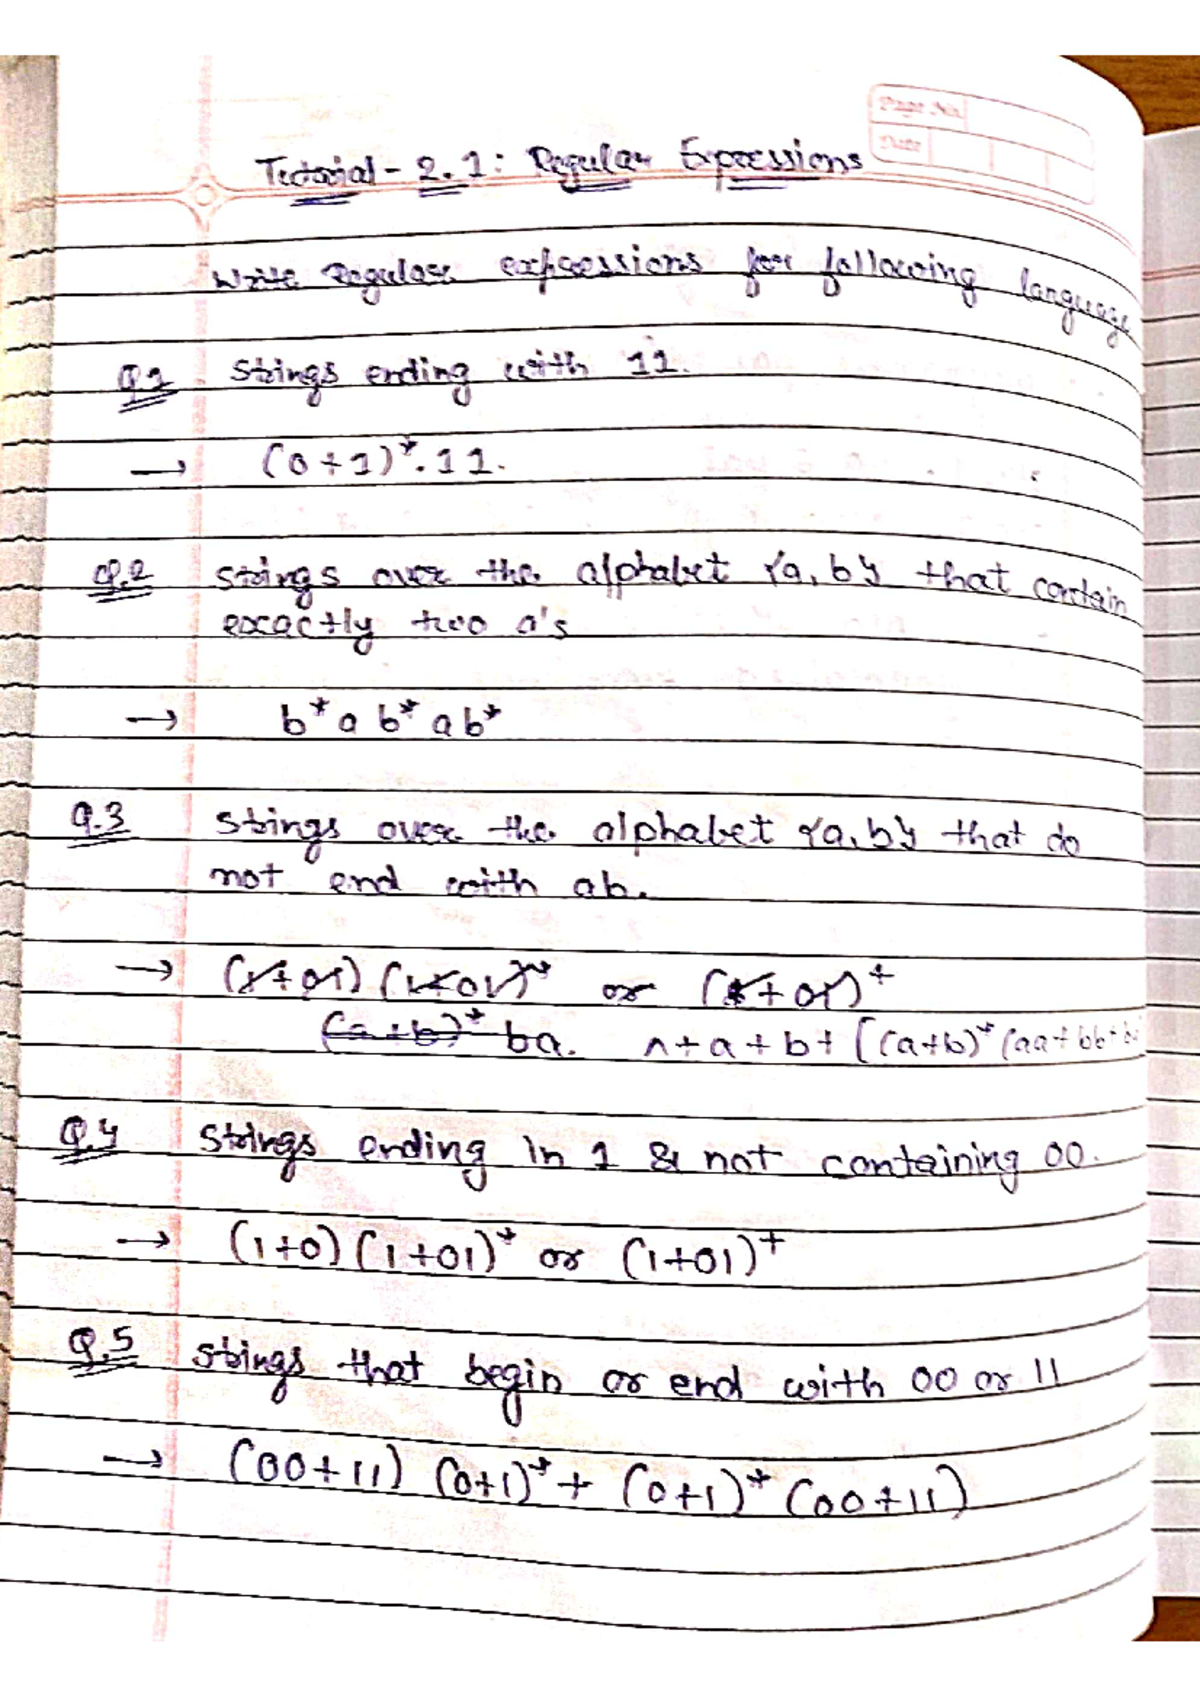 Page No.
Date
Tutorial - 2.1: Regular Expressions
Write Regular expressions for following language
Q.1 Strings ending with 11.
→ (0+1)*.11.
Q.2 Strings over the alphabet {a, b} that contain
exactly two a's
→ b* a b* a b*
Q.3 Strings over the alphabet {a, b} that do
not end with ab.
→ (1+01) (1+01)* or (1+01)+
(a+b)* ba. ∧+a+b+[(a+b)* (aa+bb+b
Q.4 Strings ending in 1 & not containing 00.
→ (1+0) (1+01)* or (1+01)+
Q.5 Strings that begin or end with 00 or 11
→ (00+11) (0+1)* + (0+1)* (00+11)